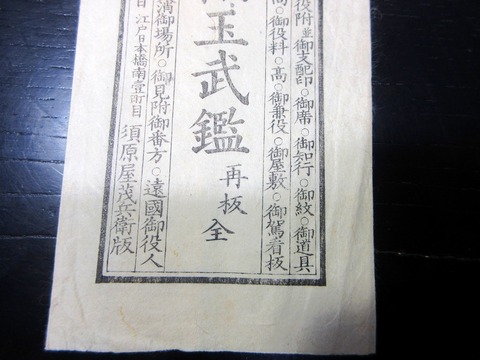 役附並御支配印○御席○御知行○御紋○御道具
高○御役料○高○御兼役○御屋敷○御駕看板
玉武鑑 再板 全
御場所○御見附御番方○遠國御役人
江戸日本橋南壹町目 須原屋茂兵衛版